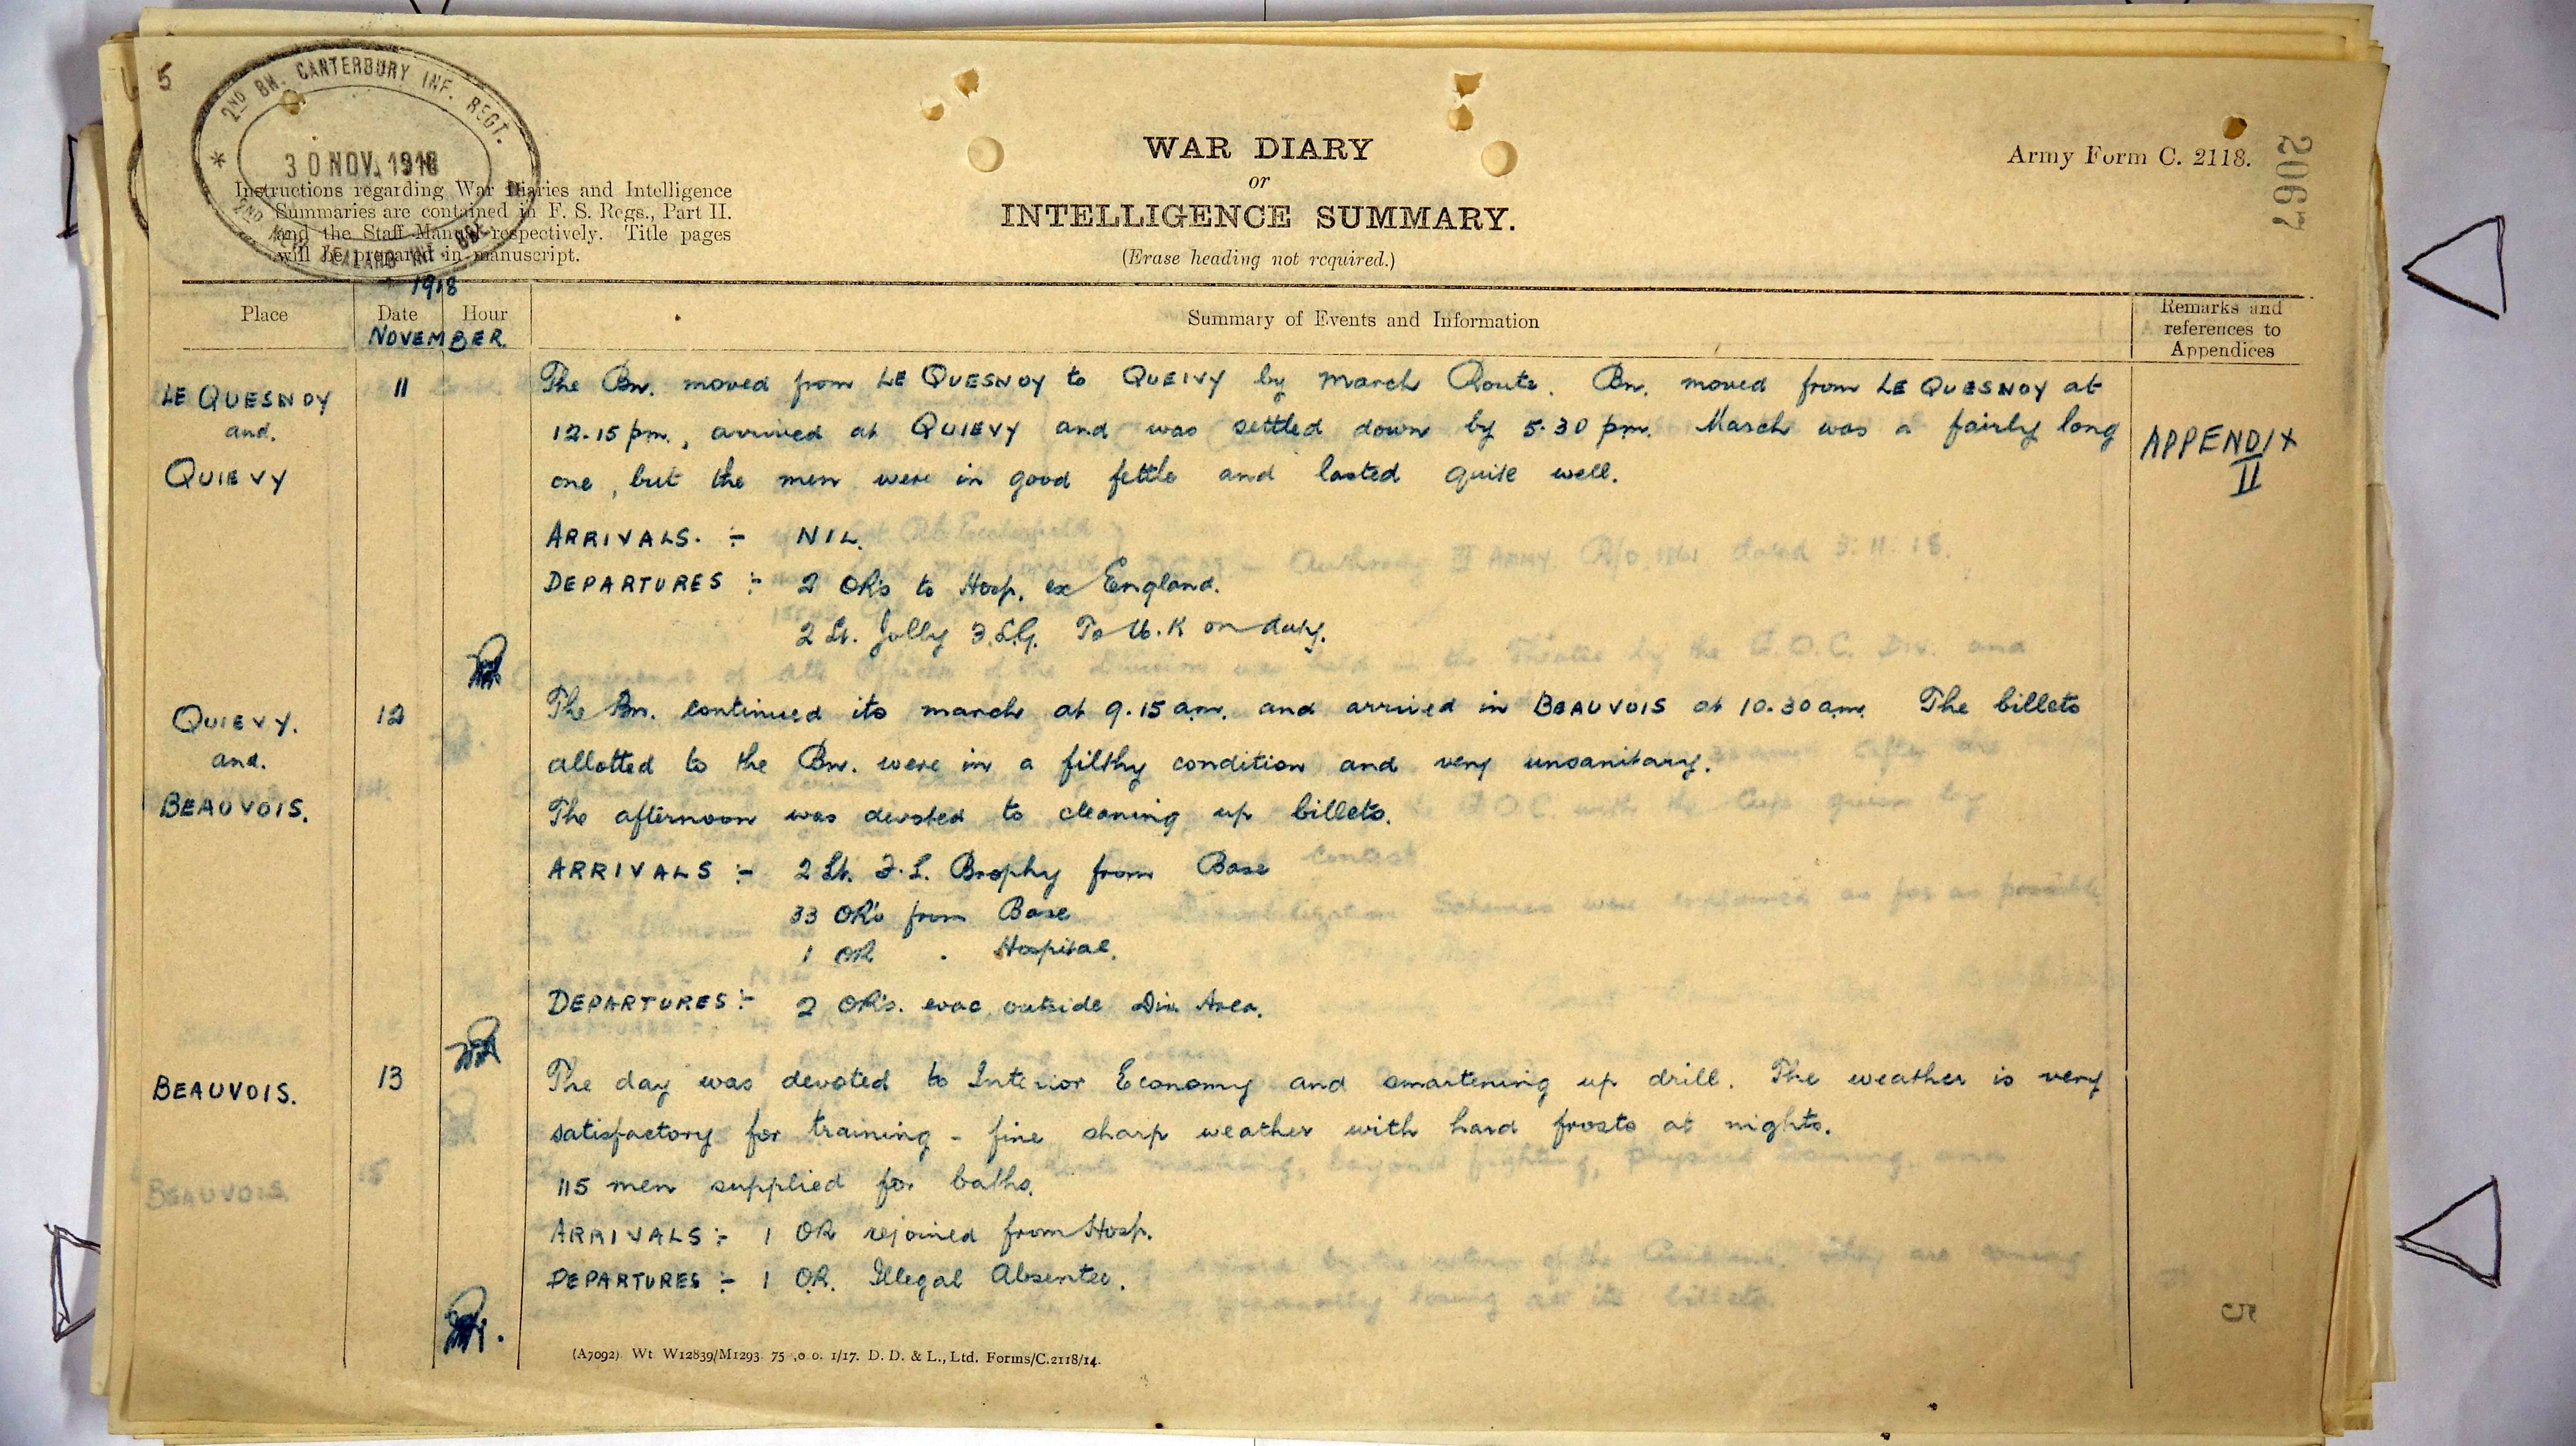 5
2ND BN. CANTERBURY INF. REGT.
30 NOV. 1918
Instructions regarding War Diaries and Intelligence
Summaries are contained in F. S. Regs., Part II.
and the Staff Manual respectively. Title pages
will be prepared in manuscript.
WAR DIARY
or
INTELLIGENCE SUMMARY.
(Erase heading not required.)
Army Form C. 2118.
2067
1918
Place
Date
Hour
NOVEMBER.
Summary of Events and Information
Remarks and
references to
Appendices
LE QUESNOY
and.
QUIEVY
11
The Bn. moved from LE QUESNOY to QUEIVY by march Route. Bn. moved from LE QUESNOY at
12.15 pm., arrived at QUIEVY and was settled down by 5.30 pm. March was a fairly long
one, but the men were in good fettle and lasted quite well.
APPENDIX
II
ARRIVALS. :- NIL.
DEPARTURES :- 2 OR's to Hosp. ex England.
2 Lt. Jolly F.L.G. To U.K on duty.
QUIEVY.
and.
BEAUVOIS.
12
The Bn. continued its march at 9.15 am. and arrived in BEAUVOIS at 10.30 am. The billets
allotted to the Bn. were in a filthy condition and very unsanitary.
The afternoon was devoted to cleaning up billets.
ARRIVALS :- 2 Lt. F.L. Brophy from Base
33 OR's from Base
1 OR . Hospital.
DEPARTURES :- 2 OR's. evac. outside Div. Area.
BEAUVOIS.
13
The day was devoted to Interior Economy and smartening up drill. The weather is very
satisfactory for training - fine sharp weather with hard frosts at nights.
115 men supplied for baths.
ARRIVALS :- 1 OR rejoined from Hosp.
DEPARTURES :- 1 O.R. Illegal Absentee.
(A7092) Wt W12839/M1293. 75 ,0 0. 1/17. D. D. & L., Ltd. Forms/C.2118/14.